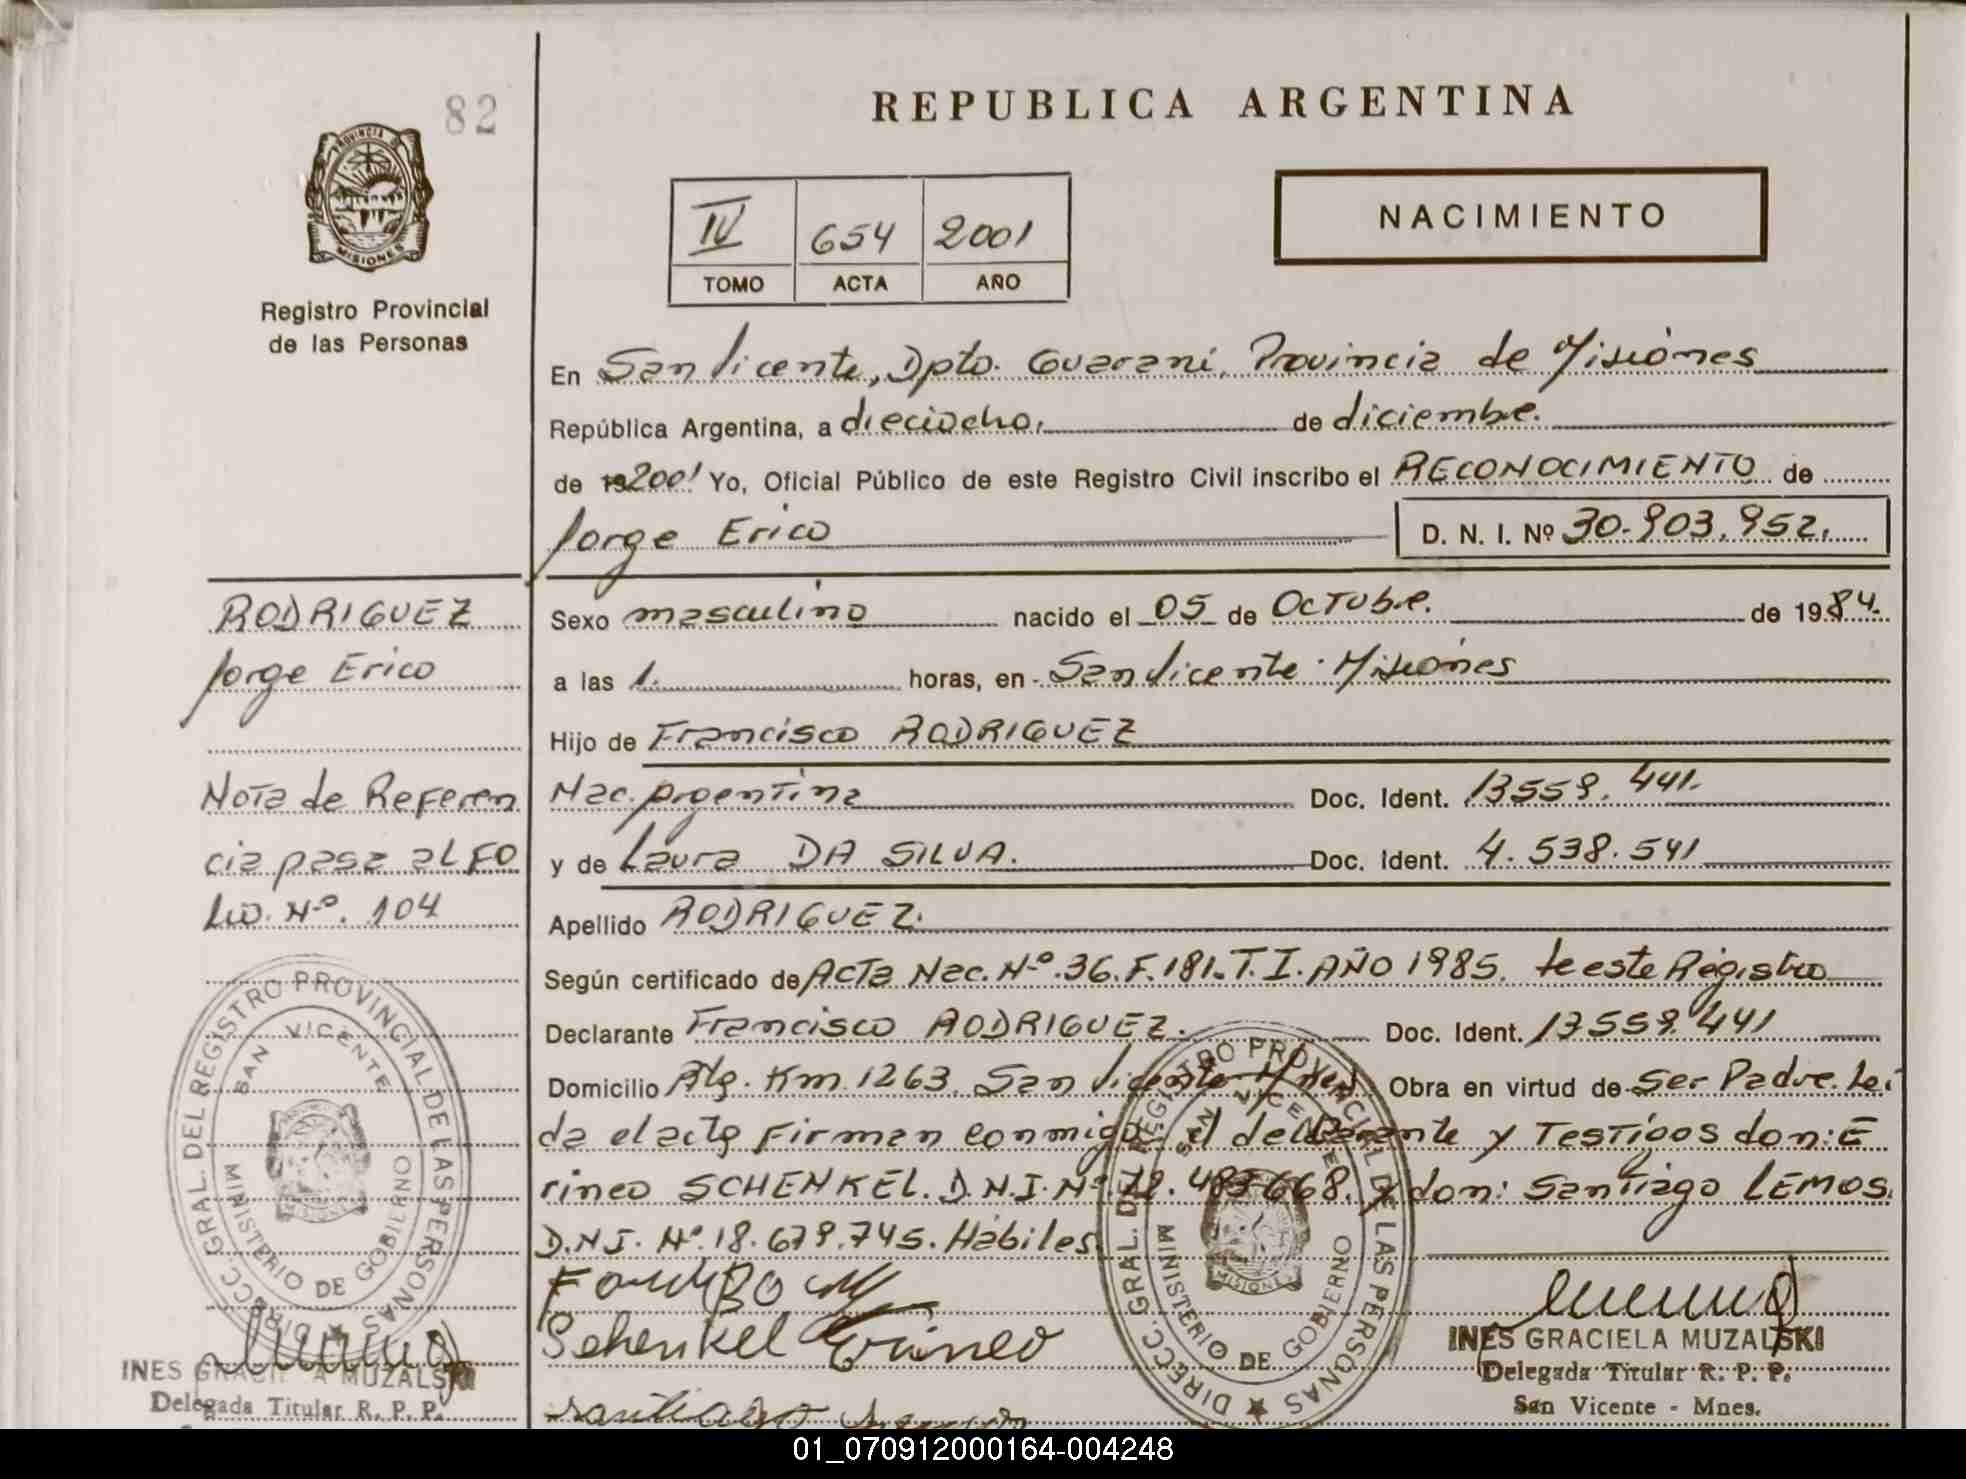 82
REPUBLICA ARGENTINA
PROVINCIA
MISIONES
Registro Provincial
de las Personas
IV 654 2001
TOMO ACTA AÑO
NACIMIENTO
En San Vicente, Dpto. Guarani, Provincia de Misiones
República Argentina, a dieciocho. de diciembre.
de 19 2001 Yo, Oficial Público de este Registro Civil inscribo el RECONOCIMIENTO de
Jorge Erico D. N. I. Nº 30.903.952.
RODRIGUEZ
Jorge Erico
Nota de Referen
cia pasa al FO
Lio. Nº. 104
Sexo masculino nacido el 05 de Octubre. de 1984.
a las 1. horas, en San Vicente - Misiones
Hijo de Francisco RODRIGUEZ
Nac. argentina Doc. Ident. 13559.441.
y de Laura DA SILVA. Doc. Ident. 4.538.541
Apellido RODRIGUEZ.
Según certificado de Acta Nac. Nº 36.F.181.T.I. AÑO 1985. de este Registro
Declarante Francisco RODRIGUEZ. Doc. Ident. 13559.441
Domicilio Km 1263. San Vicente Mnes Obra en virtud de Ser Padre. Lei
da el acta Firman conmigo el declarante y Testigos don: E
rineo SCHENKEL. D.N.I. Nº y don: Santiago LEMOS.
D.N.I. Nº 18.679.745. Hábiles
Schenkel Erineo
DIRECC. GRAL. DEL REGISTRO PROVINCIAL DE LAS PERSONAS
SAN VICENTE
MINISTERIO DE GOBIERNO
INES GRACIELA MUZALSKI
Delegada Titular R. P. P.
DIRECC. GRAL. DEL REGISTRO PROVINCIAL DE LAS PERSONAS
SAN VICENTE
MISIONES
MINISTERIO DE GOBIERNO
INES GRACIELA MUZALSKI
Delegada Titular R. P. P.
San Vicente - Mnes.
01_070912000164-004248